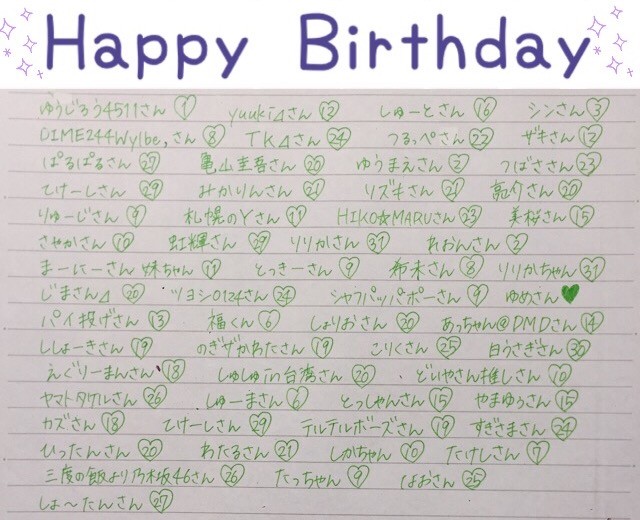 Happy Birthday
ゆうじろう4511さん 1 yuukiΔさん 12 しゅーとさん 16 シンさん 3
DIME244Wylbe,さん 8 TKΔさん 24 つるっぺさん 22 ザキさん 12
ぱるぱるさん 27 亀山圭吾さん 20 ゆうまえさん 2 つばささん 23
てけーしさん 29 みかりんさん 21 リズキさん 21 さん 20
りゅーじさん 9 札幌のYさん 11 HIKO☆MARUさん 23 美桜さん 15
さやかさん 10 虹輝さん 29 りりかさん 31 れおんさん 2
まーにーさん 妹ちゃん 11 とっきーさん 9 希未さん 8 りりかちゃん 31
じまさんΔ 20 ツヨシ0124さん 24 シャフパッパポーさん 9 ゆめさん♥
パイ投げさん 13 福くん 6 しょりおさん 20 あっちゃん@DMDさん 14
ししょーきさん 19 のぎザかわたさん 19 こりくさん 25 白うさぎさん 30
えぐりーまんさん 18 しゅしゅin台湾さん 20 どいやさん推しさん 10
ヤマトタケルさん 26 しゅーまさん 6 とっしゃんさん 15 やまゆうさん 15
カズさん 18 てけーしさん 29 テルテルボーズさん 19 すぎさまさん 24
ひったんさん 20 わたるさん 21 しかちゃん 10 たけしさん 7
三度の飯より乃木坂46さん 26 たっちゃん 9 はおさん 25
しょ〜たんさん 27